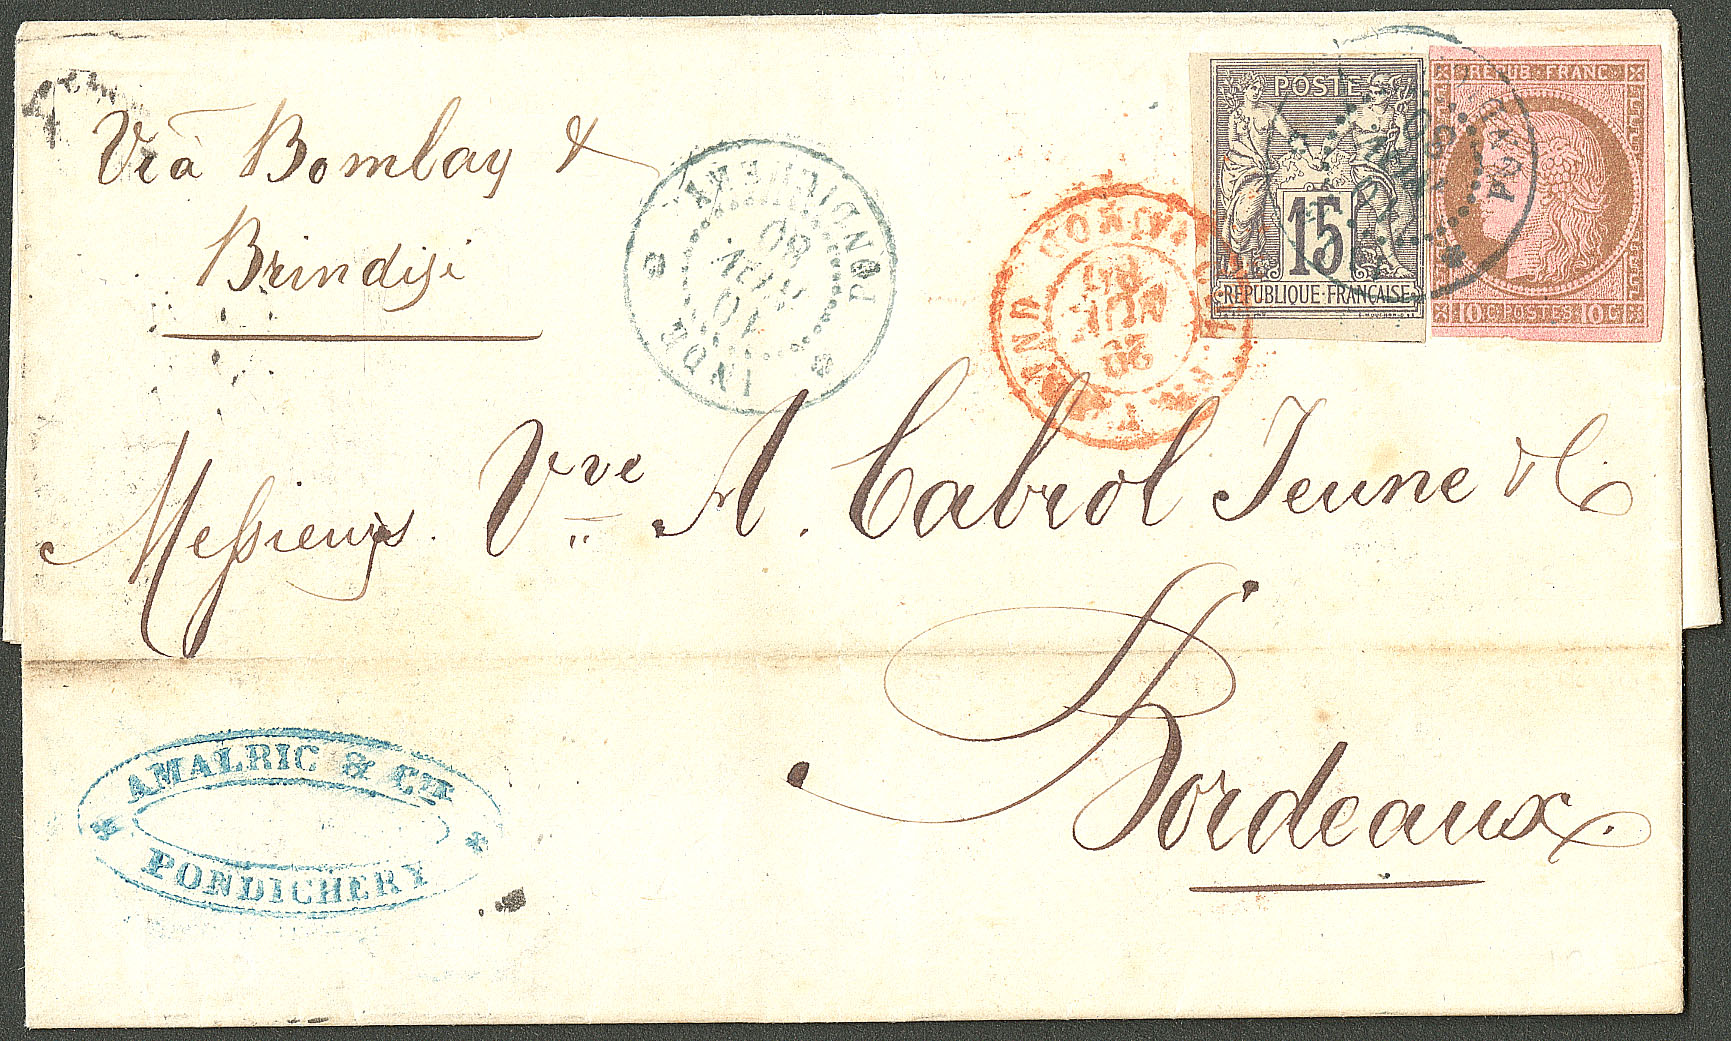 Via Bombay &
Brindisi
PONDICHERY
10
JUIN
80
INDE
POSTE
15
RÉPUBLIQUE FRANÇAISE
REPUB. FRANC
10 C POSTES 10 C
Messieurs Vve A. Cabrol Jeune & C.
Bordeaux.
AMALRIC & CIE
PONDICHERY